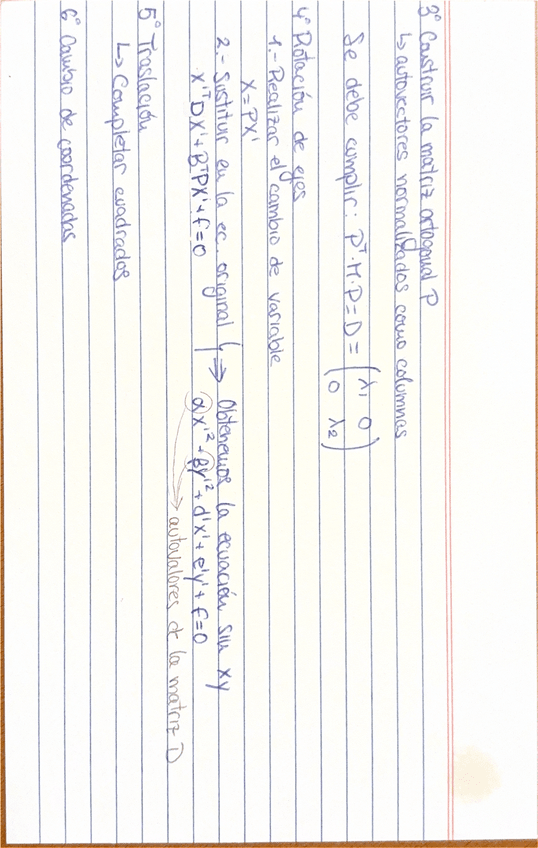 3º Construir la matriz ortogonal P
↳ autovectores normalizados como columnas
Se debe cumplir: Pᵀ·M·P = D = (λ₁ 0
0 λ₂)
4º Rotación de ejes
1.- Realizar el cambio de variable
X = PX'
2.- Sustituir en la ec. original
X'ᵀDX' + BᵀPX' + f = 0
⇒ Obtenemos la ecuación sin xy
αx'² + βy'² + d'x' + e'y' + f = 0
autovalores de la matriz D
5º Traslación
↳ Completar cuadrados
6º Cambio de coordenadas